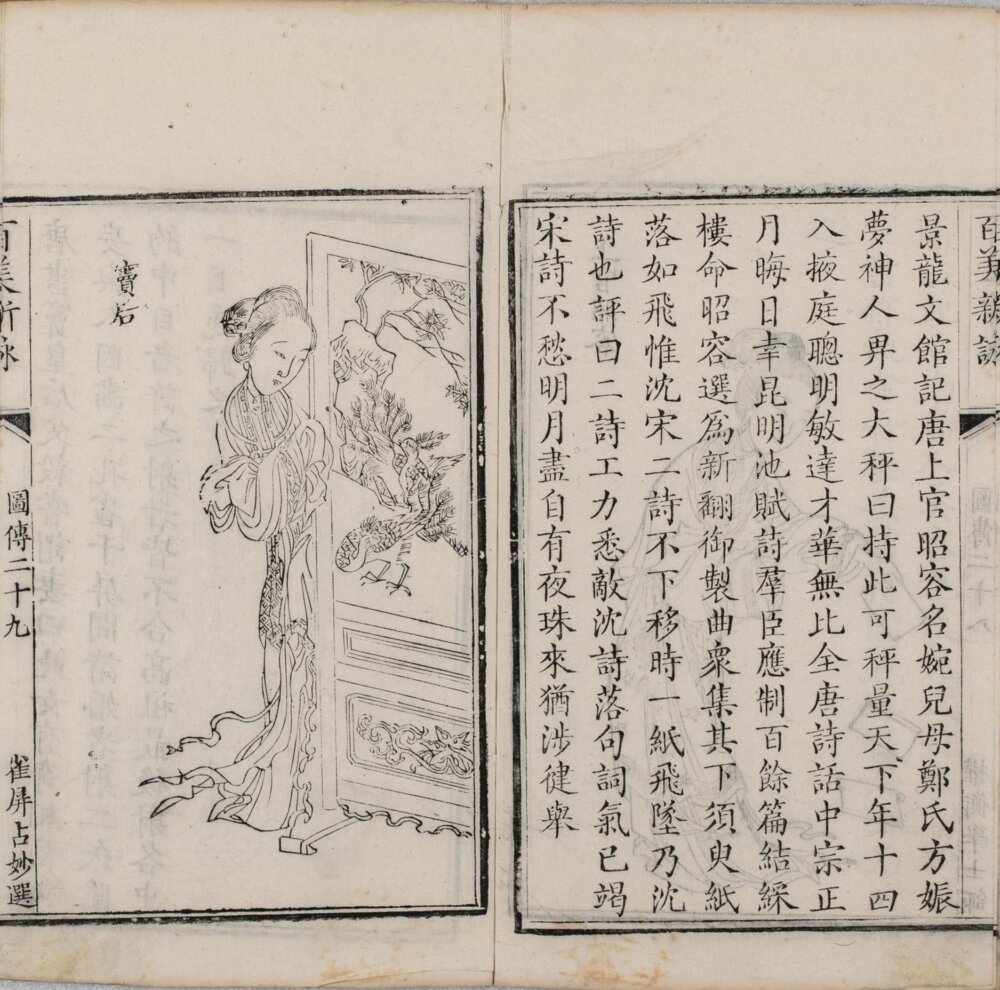 百美新詠
景龍文館記唐上官昭容名婉兒母鄭氏方娠
夢神人畀之大秤曰持此可秤量天下年十四
入掖庭聰明敏達才華無比全唐詩話中宗正
月晦日幸昆明池賦詩羣臣應制百餘篇結綵
樓命昭容選爲新翻御製曲衆集其下須臾紙
落如飛惟沈宋二詩不下移時一紙飛墜乃沈
詩也評曰二詩工力悉敵沈詩落句詞氣已竭
宋詩不愁明月盡自有夜珠來猶涉徤舉
竇后
百美新詠
圖傳二十九
雀屏占妙選